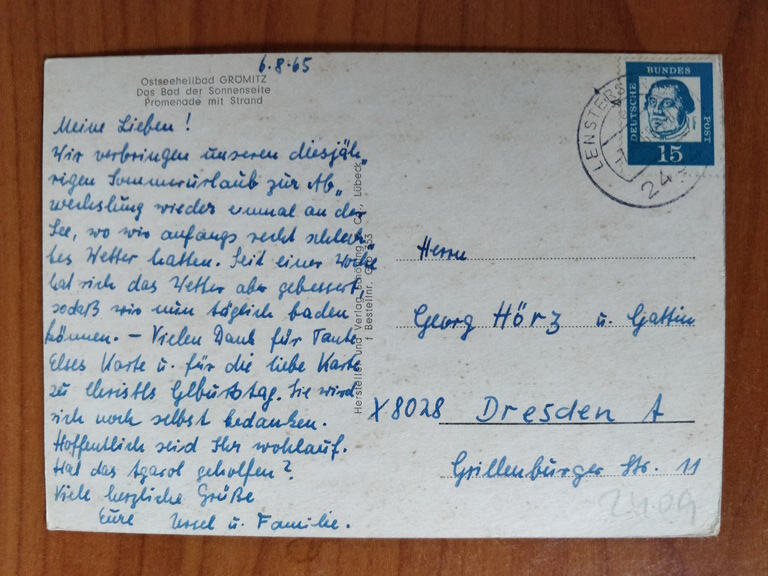 6.8.65
Ostseeheilbad GRÖMITZ
Das Bad der Sonnenseite
Promenade mit Strand
Meine Lieben!
Wir verbringen unseren diesjäh„
rigen Sommerurlaub zur Ab„
wechslung wieder einmal an der
See, wo wir anfangs recht schlech
tes Wetter hatten. Seit einer Woche
hat sich das Wetter aber gebessert,
sodaß wir nun täglich baden
können. – Vielen Dank für Tante
Elses Karte u. für die liebe Karte
zu Christls Geburtstag. Sie wird
sich noch selbst bedanken.
Hoffentlich seid Ihr wohlauf.
Hat das Agarol geholfen?
Viele herzliche Grüße
Eure Ursel u. Familie.
Hersteller und Verlag Schöning & Co., Lübeck
Bestellnr.
DEUTSCHE
BUNDES
POST
15
LENSTERS
24
Herrn
Georg Hörz u. Gattin
X8028 Dresden A
Grillenburger Str. 11
24.09